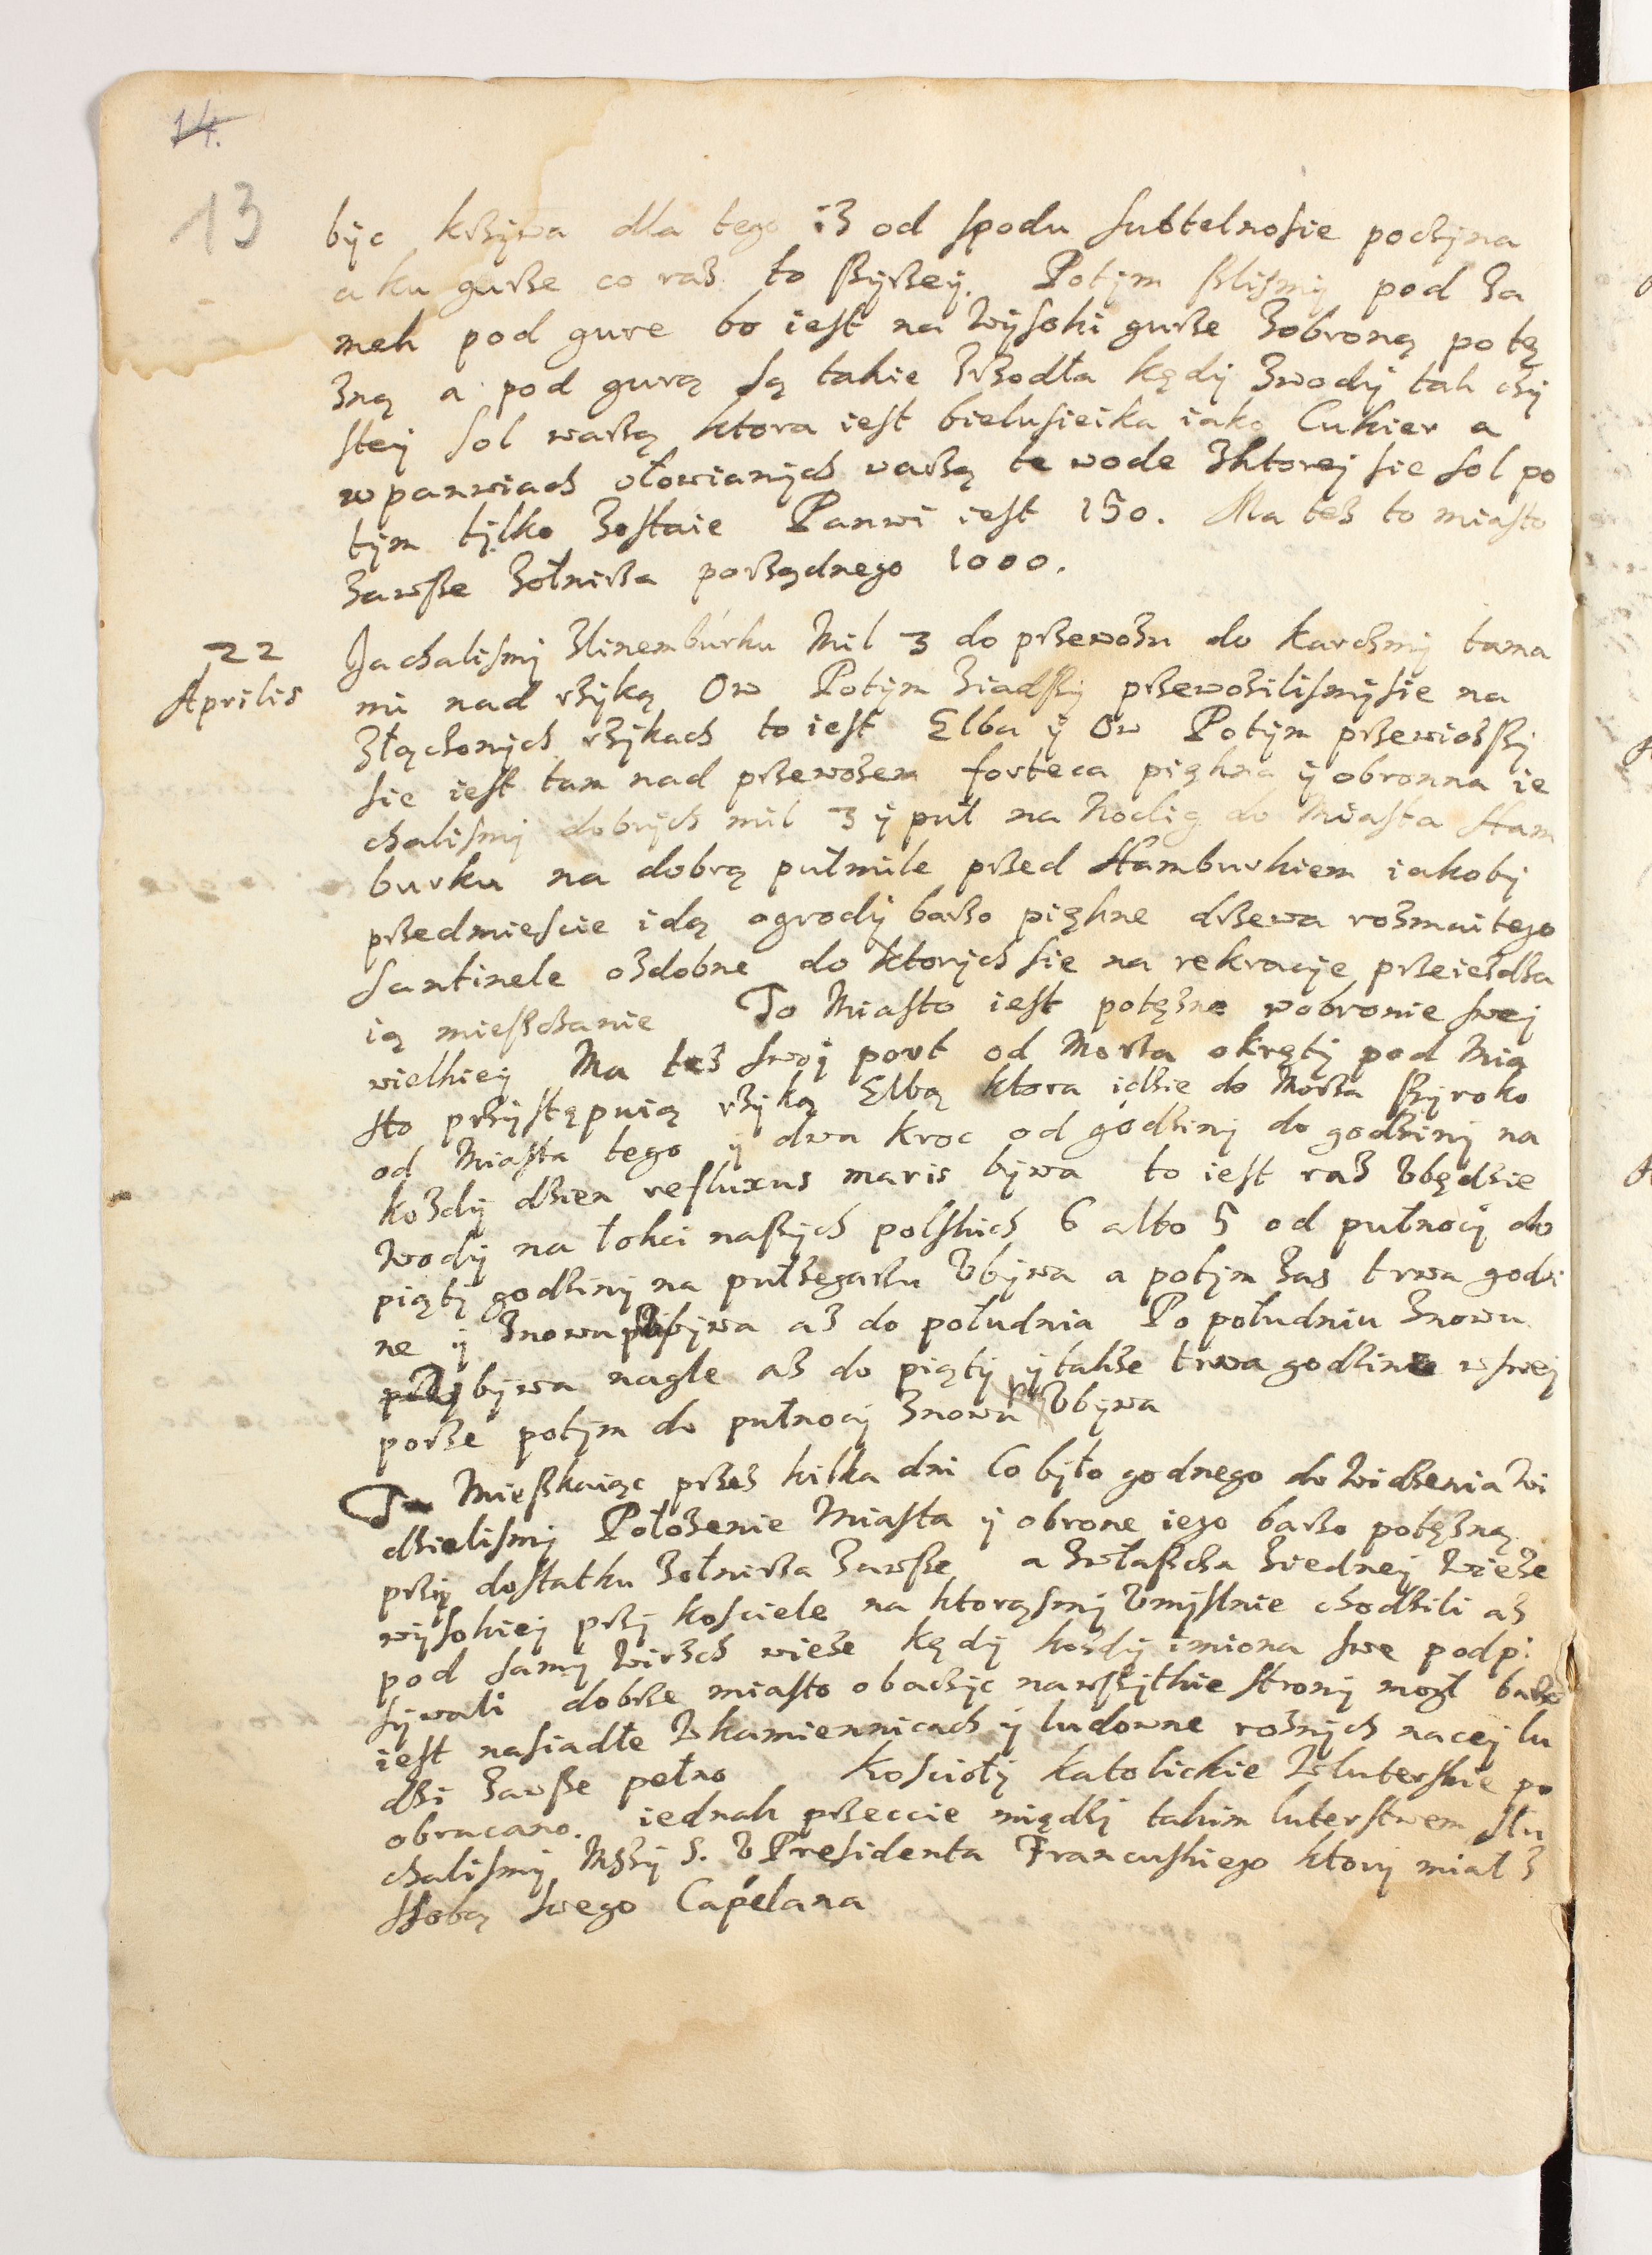 14.
13
byc krzywa dla tego iz od spodu subtelnosie poczyna
a ku gurze co raz to szyrzey. Potym szlismy pod Za
mek pod gure bo iest na wysoki gurze zobroną potę
zną a pod gurą są takie zrzodła kędy zwody tak czy
stey sol warzą ktora iest bielusieika iako Cukier a
w panwiach ołowianych warzą te wode zktorej sie sol po
tym tylko zostaie Panwi iest 150. Ma tez to miasto
zawsze zołnirza porządnego 1000.
22
Aprilis
Jachalismy zlinemburku Mil 3 do przewozu do karczmy tama
mi nad rzyką Ow Potym ziadszy przewozilismysie na
złączonych rzykach to iest Elba y Ow Potym przewiozszy
sie iest tam nad przewozem forteca piękna y obronna ie
chalismy dobrych mil 3 y puł na Noclig do Miasta Ham
burku na dobrą pułmile przed Hamburkiem iakoby
przedmiescie idą ogrody barzo piękne drzewa rozmaitego
santinele ozdobne do ktorych sie na rekracye przeiezdza
ią mieszczanie To Miasto iest potęzne wobronie swej
wielkiey Ma tez swoj port od Morza okręty pod Mia
sto przystępuią rzyką Elbą ktora idzie do Morza szyroko
od Miasta tego y dwa kroc od godziny do godziny na
kozdy dzien refluxus maris bywa to iest raz Vbędzie
Wody na łokci naszych polskich 6 albo 5 od pułnocy do
piąty godziny na pułzegarzu Vbywa a potym zas trwa godzi
ne y znowu przybywa az do południa Po południu znowu
przybywa nagle az do piąty y takze trwa godzine wswej
porze potym do pułnocy znowu Vbywa
Tu Mieszkaiąc przez kilka dni Co było godnego do Widzenia Wi
dzielismy Położenie Miasta y obrone iego barzo potęzną
przy dostatku Zołnirza zawsze a zwłaszcza ziednej Wieze
wysokiej przy kosciele na ktorąsmy Vmyslnie chodzili az
pod samy Wirzch wieze kędy kozdy imiona swe podpi
sywali dobrze miasto obaczyc nawszytkie strony mogł barzo
iest nasiadłe Wkamiennicach y ludowne roznych nacej lu
dzi zawsze pełno Koscioły Katolickie Wluterskie po
obracano. iednak przeccie między takim luterstwem słu
chalismy Mszy S. V Presidenta Francuskiego ktory miał z
Sobą swego Capelana